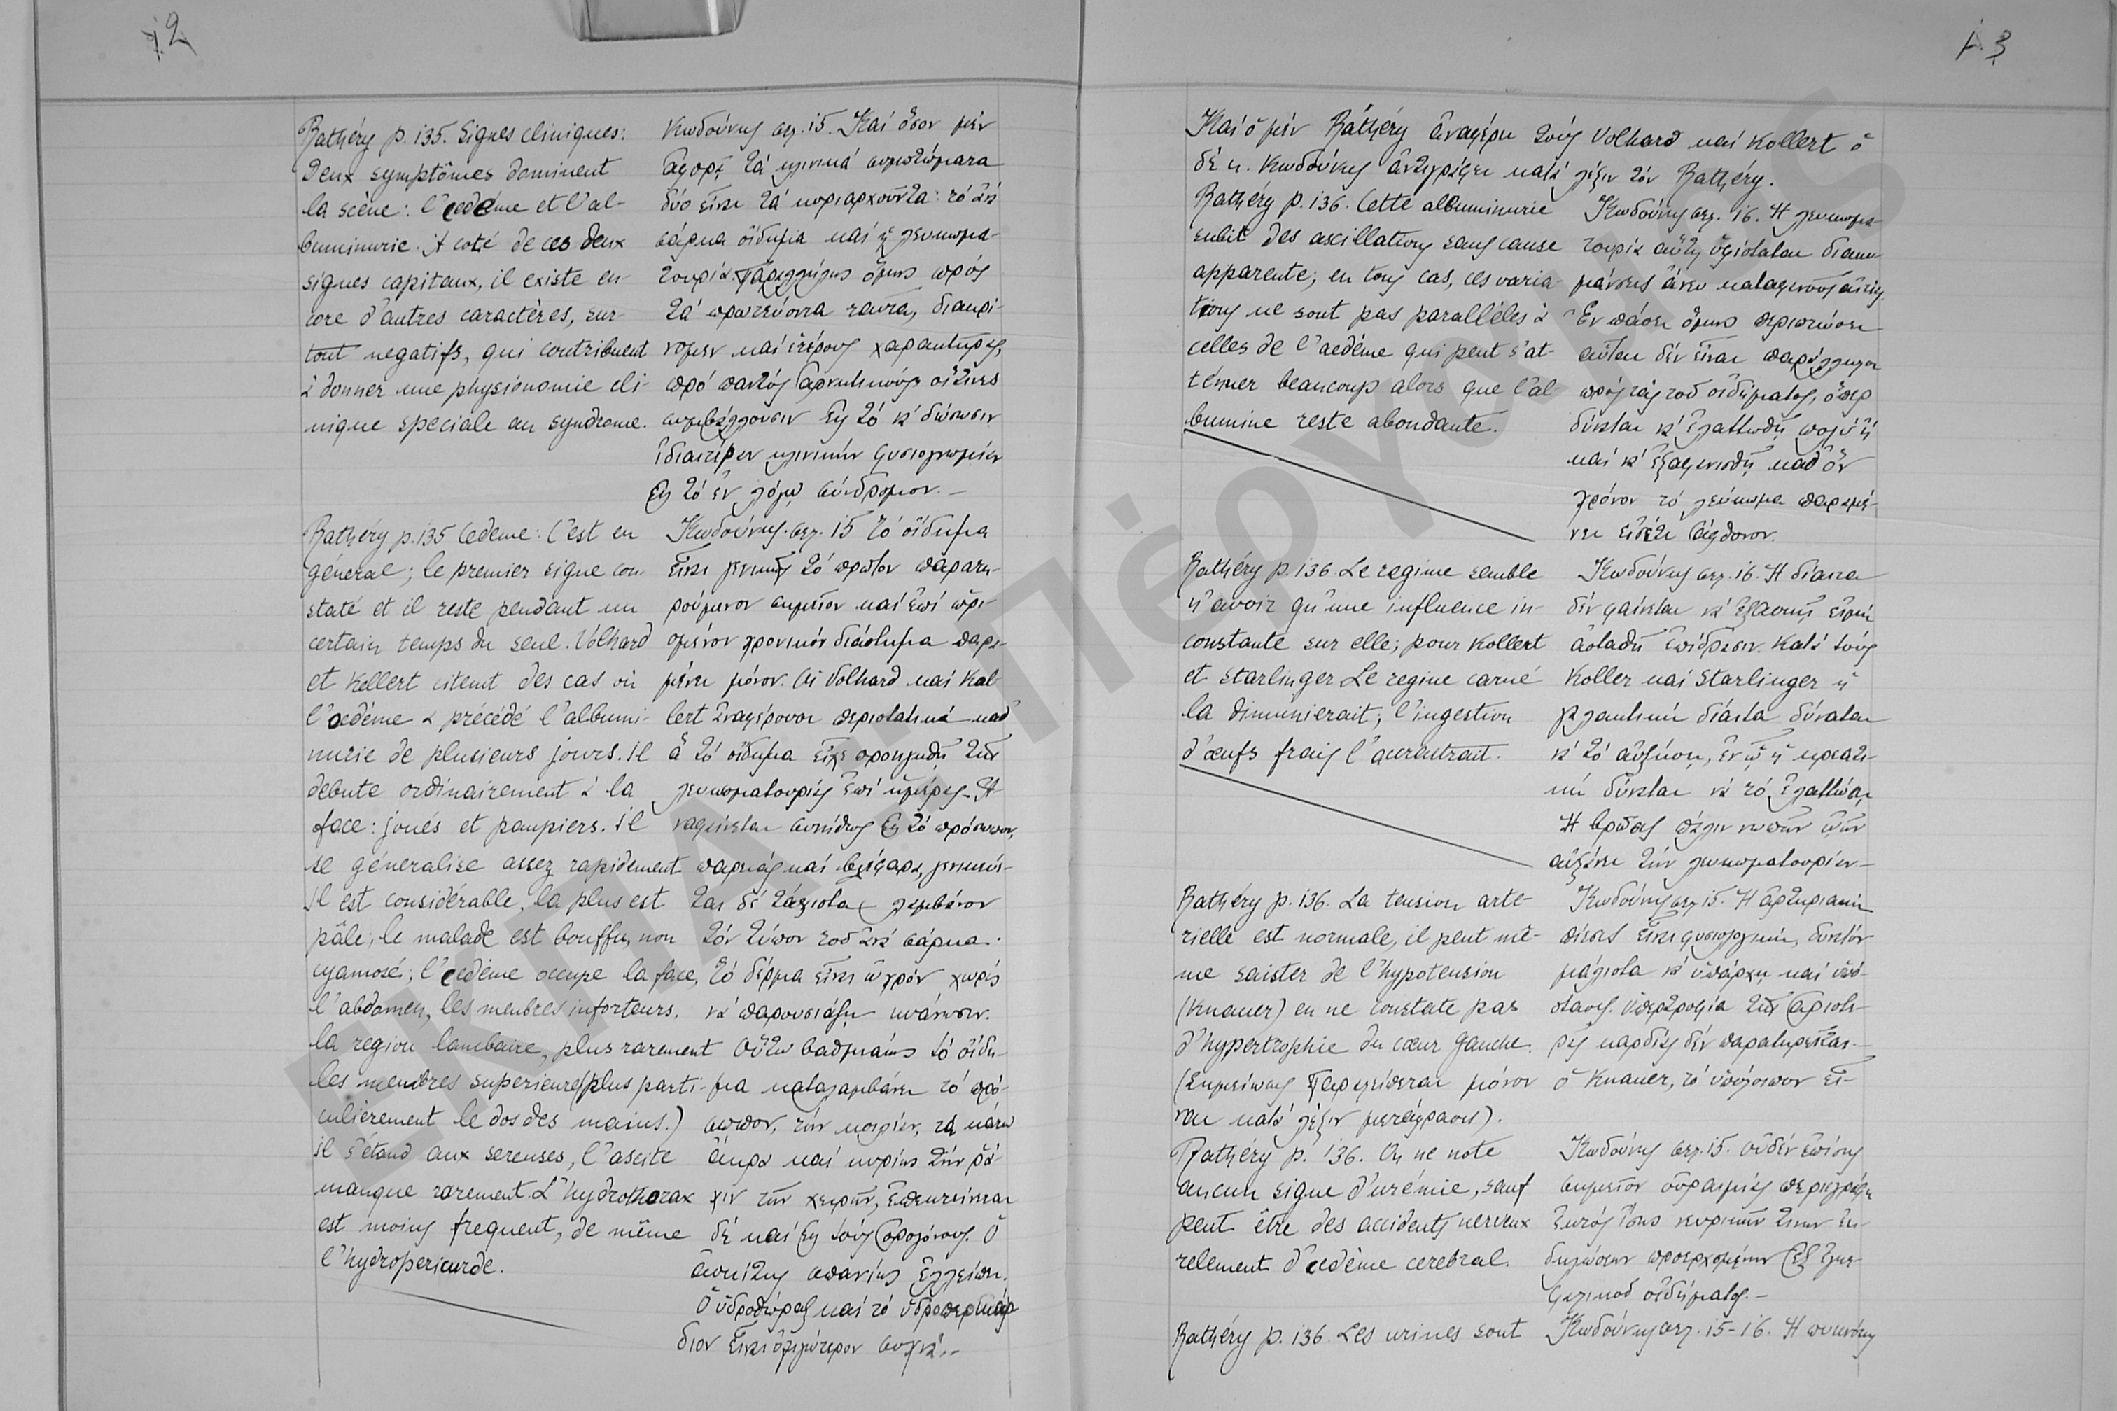 12
Rathéry p. 135. Signes cliniques:
Deux symptômes dominent
la scène: l'œdème et l'al-
buminurie. A coté de ces deux
signes capitaux, il existe en
core d'autres caractères, sur-
tout negatifs, qui contribuent
à donner une physionomie cli-
nique speciale au syndrome.
Κωδούνης σελ. 15. Καί ὅσον μέν
ἀφορᾷ τά κλινικά συμπτώματα
δύο εἶναι τά κυριαρχοῦντα: τό ἀνά
σάρκα οἴδημα καί ἡ λευκωμα-
τουρία. Παραλλήλως ὅμως πρός
τά πρωτεύοντα ταῦτα, διακρί-
νομεν καί ἑτέρους χαρακτῆρας,
πρό παντός ἀρνητικούς οἵτινες
συμβάλλουσιν εἰς τό νά δώσωσιν
ἰδιαιτέραν κλινικήν φυσιογνωμίαν
εἰς τό ἐν λόγῳ σύνδρομον. –
Rathéry p. 135 Œdeme: C'est en
général; le premier signe con
staté et il reste pendant un
certain temps du seul. Volhard
et Kellert citent des cas où
l'œdéme a précédé l'albumi-
nurie de plusieurs jours. il
debute ordinairement à la
face: joués et paupiers. il
se géneralise assez rapidement
il est considérable, la plus est
pâle; le malade est bouffu, non
cyanosé; l'œdéme occupe la face,
l'abdomen, les membres inforteurs.
la region lombaire, plus rarement
les membres superieurs (plus parti-
culièrement le dos des mains.)
il s'étand aux sereuses, l'ascite
manque rarement. L'hydrothorax
est moins frequent, de même
l'hydropericarde.
Κωδούνης. σελ. 15 Τό οἴδημα
εἶναι γενικῶς τό πρῶτον παρατη-
ρούμενον σημεῖον καί ἐπί ὡρι-
σμένον χρονικόν διάστημα παρα-
μένει μόνον. Οἱ Volhard καί Kol
lert ἀναφέρουσι περιστατικά καθ'
ἅ τό οἴδημα εἶχε προηγηθῆ τῆς
λευκωματουρίας ἐπί ἡμέρας. Ἀ
ναφαίνεται συνήθως εἰς τό πρόσωπον,
παρειάς καί βλέφαρα, γενικεύε-
ται δέ τάχιστα λαμβάνον
τόν τύπον τοῦ ἀνά σάρκα.
τό δέρμα εἶναι ὠχρόν χωρίς
νά παρουσιάζῃ κυάνωσιν.
Οὕτω βαθμιαίως τό οἴδη-
μα καταλαμβάνει τό πρό-
σωπον, τήν κοιλίαν, τά κάτω
ἄκρα καί κυρίως τήν ῥά-
χιν τῶν χειρῶν, ἐπεκτείνεται
δέ καί εἰς τούς ὀρογόνους. Ὁ
ἀσκίτης σπανίως ἐλλείπει.
Ὁ ὑδροθώραξ καί τό ὑδροπερικάρ
διον εἶναι ὀλιγώτερον συχνά. –
13
Καί ὁ μέν Rathéry ἀναφέρει τούς Volhard καί Kollert ὁ
δέ κ. Κωδούνης ἀντιγράφει κατά λέξιν τόν Rathéry.
Rathéry p. 136. Cette albuminurie
subit des ascillations sans cause
apparente; en tous cas, ces varia
tions ne sont pas paralléles à
celles de l'œdéme qui peut s'at-
ténuer beaucoup alors que l'al
bumine reste abondante.
Κωδούνης σελ. 16. Ἡ λευκωμα-
τουρία αὕτη ὑφίσταται διακυ
μάνσεις ἄνευ καταφανοῦς αἰτίας
Ἐν πάσῃ ὅμως περιπτώσει
αὗται δέν εἶναι παράλληλοι
πρός τάς τοῦ οἰδήματος, ὅπερ
δύναται νά ἐλαττωθῇ πολύ ἤ
καί νά ἐξαφανισθῇ καθ' ὅν
χρόνον τό λεύκωμα παραμέ-
νει εἰσέτι ἄφθονον.
Rathéry p. 136 Le regime semble
n'avoir qu'une influence in-
constante sur elle; pour Kollert
et Starlinger Le regime carné
la dimunierait; l'ingestion
d'œufs frais l'aurentrait.
Κωδούνης σελ. 16. Ἡ δίαιτα
δέν φαίνεται νά ἐξασκῇ εἰμή
ἀσταθῆ ἐπίδρασιν. Κατά τούς
Koller καί Starlinger ἡ
γαλακτική δίαιτα δύναται
νά τό αὐξήσῃ, ἐν ᾧ ἡ κρεατι-
κή δύναται νά τό ἐλαττώσῃ
Ἡ βρῶσις πάλιν νωπῶν ὠῶν
αὐξάνει τήν λευκωματουρίαν –
Rathéry p. 136. La tension arte-
rielle est normale, il peut mê-
me saister de l'hypotension
(Knauer) en ne constate pas
d'hypertrophie du cœur gauche.
Κωδούνης σελ. 15. Ἡ ἀρτηριακή
πίεσις εἶναι φυσιολογική, δυνατόν
μάλιστα νά ὑπάρχῃ καί ὑπό-
τασις. Ὑπερτροφία τῆς ἀριστε-
ρᾶς καρδίας δέν παρατηρεῖται –
(Σημείωσις Παραλείπεται μόνον ὁ Knauer, τό ὑπόλοιπον εἶ-
ναι κατά λέξιν μετάφρασις).
Rathéry p. 136. On ne note
aucun signe d'urémie, sauf
peut être des accidents nerveux
relement d'œdéme cerebral.
Κωδούνης σελ. 15. Οὐδέν ἐπίσης
σημεῖον οὐραιμίας περιγράφει
ἐκτός ἴσως νευρικῶν τινων ἐκ-
δηλώσεων προερχομένων ἐξ ἐγκε-
φαλικοῦ οἰδήματος. –
Rathéry p. 136. Les urines sont
Κωδούνης σελ. 15-16. Ἡ πυκνότης
ΕΚΠΑ